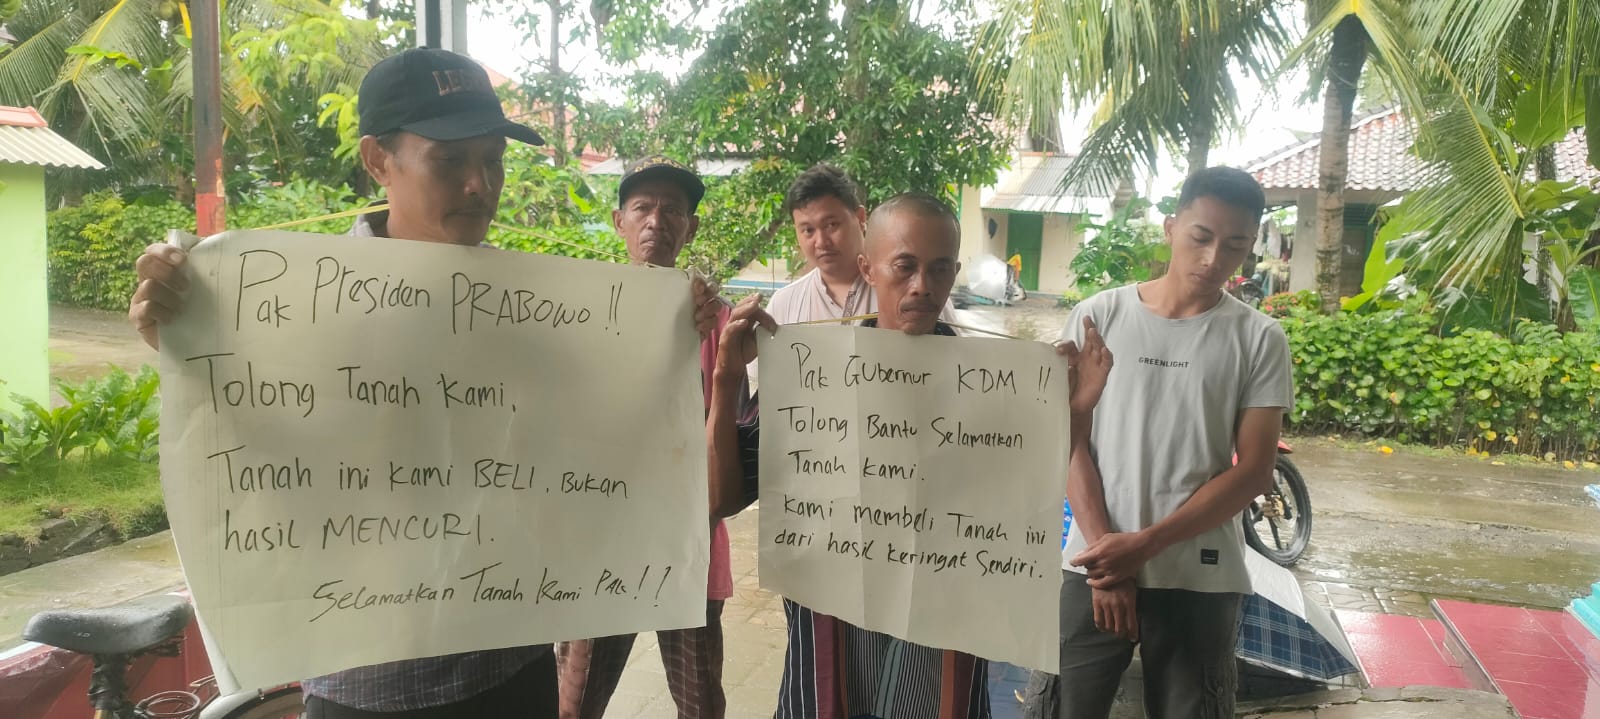 Pak Presiden PRABOWO !!
Tolong Tanah Kami.
Tanah ini Kami BELI. BUKAN
hasil MENCURI.
Selamatkan Tanah Kami PAk !!
Pak GUbernur KDM !!
Tolong Bantu Selamatkan
Tanah Kami.
Kami membeli Tanah ini
dari hasil keringat Sendiri.
GREENLIGHT